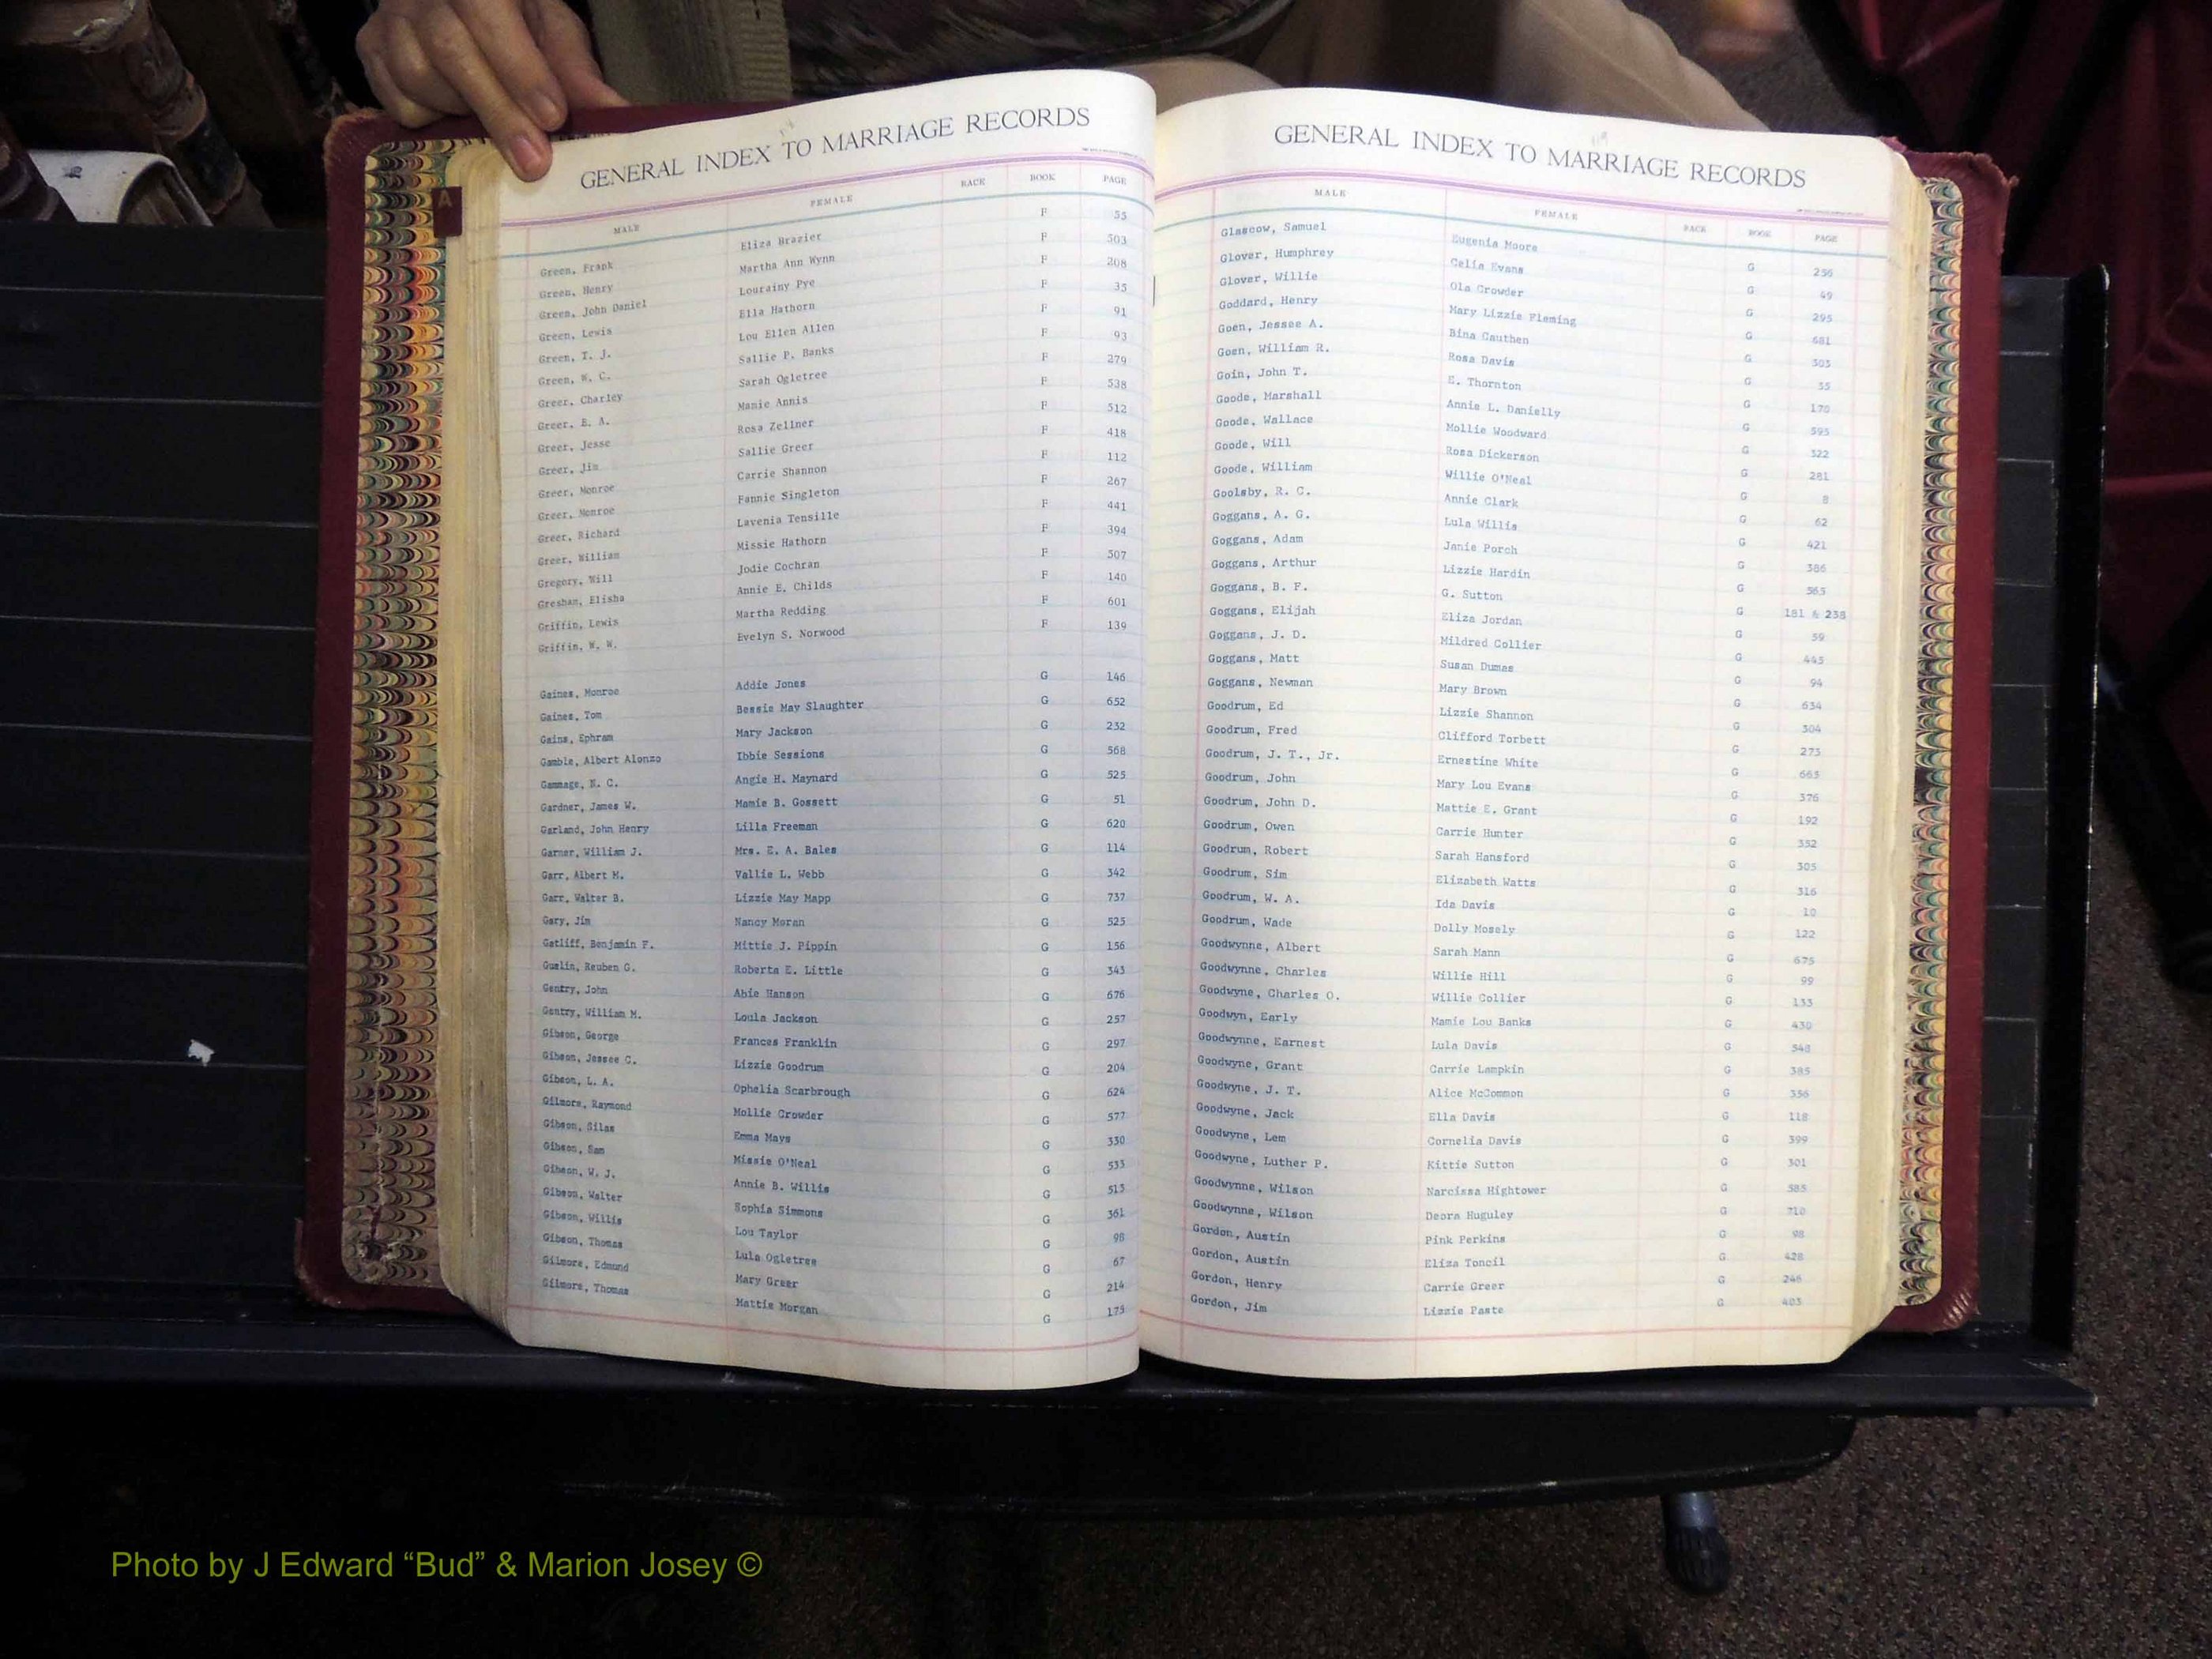 GENERAL INDEX TO MARRIAGE RECORDS
MALE FEMALE RACE BOOK PAGE
Green, Frank Eliza Brazier F 55
Green, Henry Martha Ann Wynn F 503
Green, John Daniel Lourainy Pye F 208
Green, Lewis Ella Hathorn F 35
Green, T. J. Lou Ellen Allen F 91
Green, W. C. Sallie P. Banks F 93
Greer, Charley Sarah Ogletree F 279
Greer, E. A. Manie Annis F 538
Greer, Jesse Rosa Zellner F 512
Greer, Jim Sallie Greer F 418
Greer, Monroe Carrie Shannon F 112
Greer, Monroe Fannie Singleton F 267
Greer, Richard Lavenia Tensille F 441
Greer, William Missie Hathorn F 394
Gregory, Will Jodie Cochran F 507
Gresham, Elisha Annie E. Childs F 140
Griffin, Lewis Martha Redding F 601
Griffin, W. W. Evelyn S. Norwood F 139
Gaines, Monroe Addie Jones G 146
Gaines, Tom Bessie May Slaughter G 652
Gains, Ephram Mary Jackson G 232
Gamble, Albert Alonzo Ibbie Sessions G 568
Gammage, N. C. Angie H. Maynard G 525
Gardner, James W. Mamie B. Gossett G 51
Garland, John Henry Lilla Freeman G 620
Garner, William J. Mrs. E. A. Bales G 114
Garr, Albert M. Vallie L. Webb G 342
Garr, Walter B. Lizzie May Mapp G 737
Gary, Jim Nancy Moran G 525
Gatliff, Benjamin F. Mittie J. Pippin G 156
Guelin, Reuben G. Roberta E. Little G 343
Gentry, John Abie Hanson G 676
Gentry, William M. Loula Jackson G 257
Gibson, George Frances Franklin G 297
Gibson, Jessee C. Lizzie Goodrum G 204
Gibson, L. A. Ophelia Scarbrough G 624
Gilmore, Raymond Mollie Crowder G 577
Gibson, Silas Emma Mays G 330
Gibson, Sam Missie O'Neal G 533
Gibson, W. J. Annie B. Willis G 513
Gibson, Walter Sophia Simmons G 361
Gibson, Willis Lou Taylor G 98
Gibson, Thomas Lula Ogletree G 67
Gilmore, Edmund Mary Greer G 214
Gilmore, Thomas Mattie Morgan G 175
GENERAL INDEX TO MARRIAGE RECORDS
MALE FEMALE RACE BOOK PAGE
Glascow, Samuel Eugenia Moore G 256
Glover, Humphrey Celia Evans G 49
Glover, Willie Ola Crowder G 295
Goddard, Henry Mary Lizzie Fleming G 681
Goen, Jessee A. Bina Cauthen G 303
Goen, William R. Rosa Davis G 55
Goin, John T. E. Thornton G 170
Goode, Marshall Annie L. Danielly G 595
Goode, Wallace Mollie Woodward G 322
Goode, Will Rosa Dickerson G 281
Goode, William Willie O'Neal G 8
Goolsby, R. C. Annie Clark G 62
Goggans, A. G. Lula Willis G 421
Goggans, Adam Janie Porch G 386
Goggans, Arthur Lizzie Hardin G 565
Goggans, B. F. G. Sutton G 181 & 238
Goggans, Elijah Eliza Jordan G 59
Goggans, J. D. Mildred Collier G 445
Goggans, Matt Susan Dumas G 94
Goggans, Newman Mary Brown G 634
Goodrum, Ed Lizzie Shannon G 304
Goodrum, Fred Clifford Torbett G 273
Goodrum, J. T., Jr. Ernestine White G 665
Goodrum, John Mary Lou Evans G 376
Goodrum, John D. Mattie E. Grant G 192
Goodrum, Owen Carrie Hunter G 332
Goodrum, Robert Sarah Hansford G 305
Goodrum, Sim Elizabeth Watts G 316
Goodrum, W. A. Ida Davis G 10
Goodrum, Wade Dolly Mosely G 122
Goodwynne, Albert Sarah Mann G 675
Goodwynne, Charles Willie Hill G 99
Goodwyne, Charles O. Willie Collier G 133
Goodwyn, Early Mamie Lou Banks G 430
Goodwynne, Earnest Lula Davis G 548
Goodwyne, Grant Carrie Lampkin G 385
Goodwyne, J. T. Alice McCommon G 356
Goodwyne, Jack Ella Davis G 118
Goodwyne, Lem Cornelia Davis G 399
Goodwyne, Luther P. Kittie Sutton G 301
Goodwynne, Wilson Narcissa Hightower G 585
Goodwynne, Wilson Deora Huguley G 710
Gordon, Austin Pink Perkins G 98
Gordon, Austin Eliza Toncil G 428
Gordon, Henry Carrie Greer G 246
Gordon, Jim Lizzie Paste G 403
A
Photo by J Edward “Bud” & Marion Josey ©